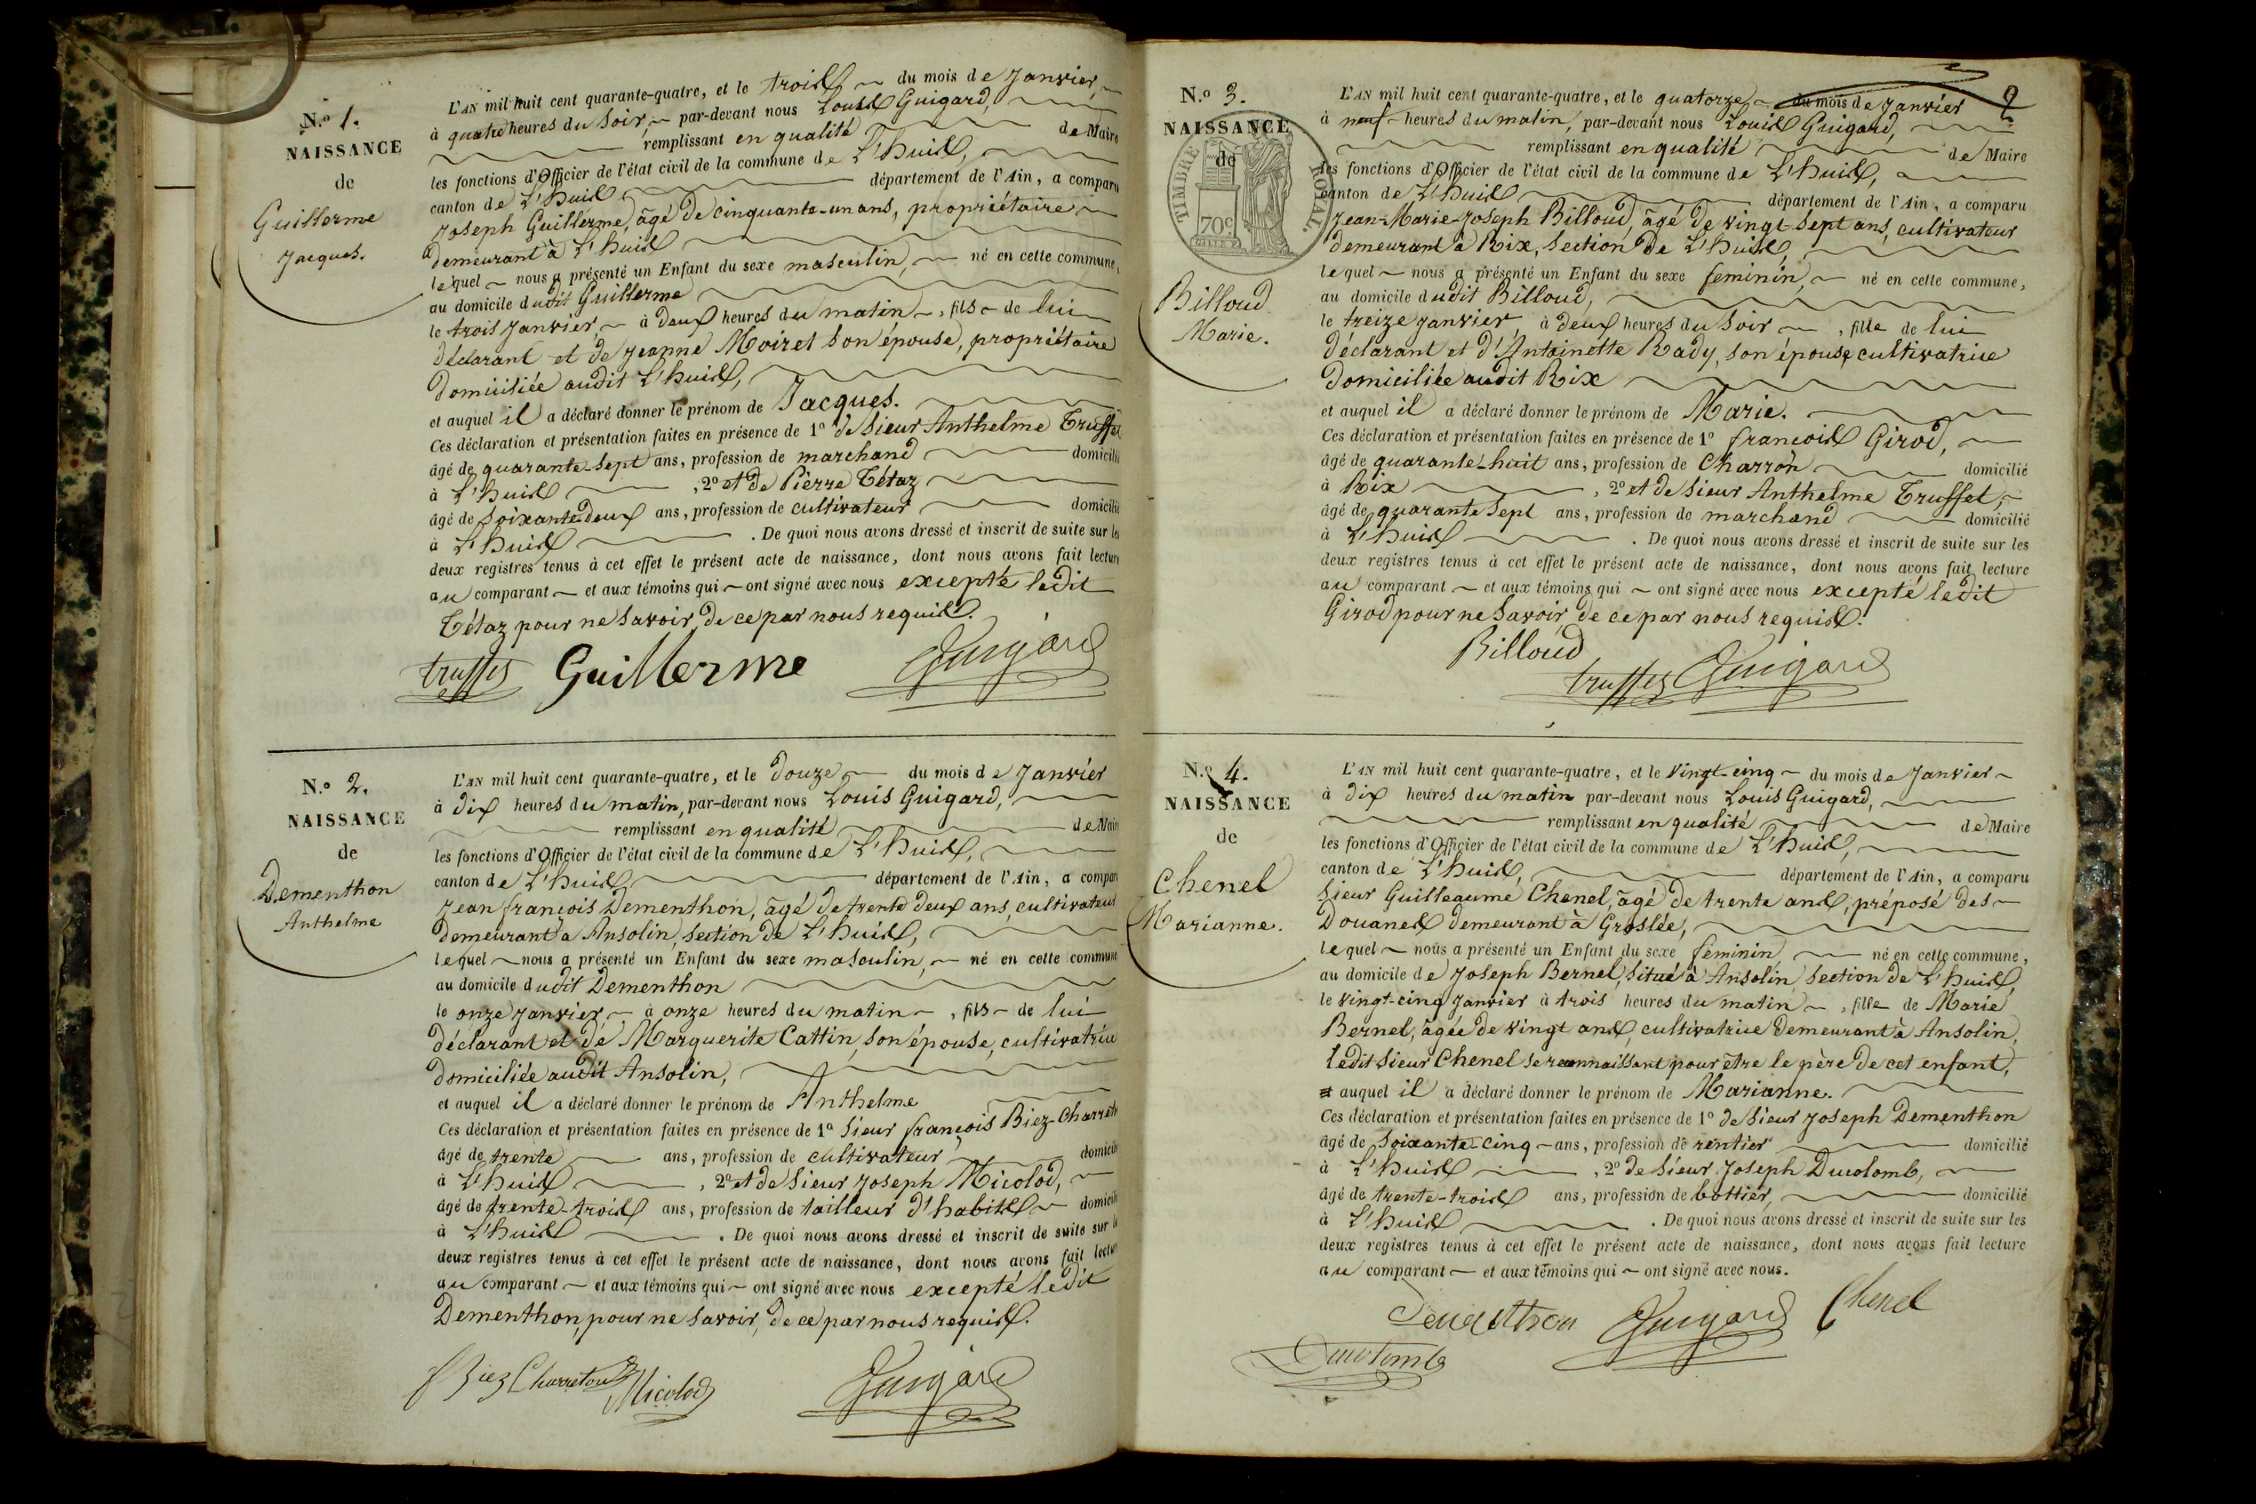 N.º 1.
NAISSANCE
de
Guillerme
Jacques.
L'AN mil huit cent quarante-quatre, et le trois du mois de Janvier,
à quatre heures du soir, par-devant nous Louis Guigard,
remplissant en qualité de Maire
les fonctions d'Officier de l'état civil de la commune de L'huis,
canton de L'huis département de l'Ain, a comparu
Joseph Guillerme, âgé de cinquante-un ans, propriétaire
demeurant à L'huis
lequel nous a présenté un Enfant du sexe masculin, né en cette commune,
au domicile dudit Guillerme
le trois Janvier, à deux heures du matin, fils de lui
déclarant et de Jeanne Moiret son épouse, propriétaire
domiciliée audit L'huis,
et auquel il a déclaré donner le prénom de Jacques.
Ces déclaration et présentation faites en présence de 1º de Sieur Anthelme Truffet
âgé de quarante-sept ans, profession de marchand domicilié
à L'huis, 2º et de Pierre Tétaz
âgé de soixante deux ans, profession de cultivateur domicilié
à L'huis. De quoi nous avons dressé et inscrit de suite sur les
deux registres tenus à cet effet le présent acte de naissance, dont nous avons fait lecture
au comparant et aux témoins qui ont signé avec nous excepté ledit
Tétaz pour ne savoir, de ce par nous requis.
truffet Guillerme Guigard
N.º 2.
NAISSANCE
de
Dementhon
Anthelme
L'AN mil huit cent quarante-quatre, et le douze du mois de Janvier
à dix heures du matin, par-devant nous Louis Guigard,
remplissant en qualité de Maire
les fonctions d'Officier de l'état civil de la commune de L'huis,
canton de L'huis, département de l'Ain, a comparu
Jean françois Dementhon, âgé de trente deux ans, cultivateur
demeurant à Ansolin, section de L'huis,
lequel nous a présenté un Enfant du sexe masculin, né en cette commune
au domicile dudit Dementhon
le onze janvier, à onze heures du matin, fils de lui
déclarant et de Marguerite Cattin, son épouse, cultivatrice
domiciliée audit Ansolin,
et auquel il a déclaré donner le prénom de Anthelme
Ces déclaration et présentation faites en présence de 1º Sieur françois Biez-Charreton
âgé de trente ans, profession de cultivateur domicilié
à L'huis, 2º et de Sieur Joseph Micolod,
âgé de trente-trois ans, profession de tailleur d'habits domicilié
à L'huis. De quoi nous avons dressé et inscrit de suite sur les
deux registres tenus à cet effet le présent acte de naissance, dont nous avons fait lecture
au comparant et aux témoins qui ont signé avec nous excepté ledit
Dementhon, pour ne savoir, de ce par nous requis.
Biez Charreton Micolod Guigard
2
N.º 3.
NAISSANCE
de
TIMBRE ROYAL
70c
Billoud
Marie.
L'AN mil huit cent quarante-quatre, et le quatorze, du mois de Janvier
à neuf heures du matin, par-devant nous Louis Guigard,
remplissant en qualité de Maire
les fonctions d'Officier de l'état civil de la commune de L'huis,
canton de L'huis département de l'Ain, a comparu
Jean-Marie-Joseph Billoud, âgé de vingt sept ans, cultivateur
demeurant à Rix, section de L'huis,
lequel nous a présenté un Enfant du sexe feminin, né en cette commune,
au domicile dudit Billoud,
le treize janvier, à deux heures du soir, fille de lui
déclarant et d'Antoinette Rady, son épouse cultivatrice
domiciliée audit Rix
et auquel il a déclaré donner le prénom de Marie.
Ces déclaration et présentation faites en présence de 1º françois Girod,
âgé de quarante-huit ans, profession de Charron domicilié
à Rix, 2º et de Sieur Anthelme Truffet,
âgé de quarante sept ans, profession de marchand domicilié
à L'huis. De quoi nous avons dressé et inscrit de suite sur les
deux registres tenus à cet effet le présent acte de naissance, dont nous avons fait lecture
au comparant et aux témoins qui ont signé avec nous excepté ledit
Girod pour ne savoir, de ce par nous requis.
Billoud
truffet Guigard
N.º 4.
NAISSANCE
de
Chenel
Marianne.
L'AN mil huit cent quarante-quatre, et le Vingt-cinq du mois de Janvier
à dix heures du matin par-devant nous Louis Guigard,
remplissant en qualité de Maire
les fonctions d'Officier de l'état civil de la commune de L'huis,
canton de L'huis, département de l'Ain, a comparu
Sieur Guilleaume Chenel, âgé de trente ans, préposé des
Douanes demeurant à Groslée,
lequel nous a présenté un Enfant du sexe féminin, né en cette commune,
au domicile de Joseph Bernel, situé à Ansolin, section de L'huis,
le vingt-cinq Janvier à trois heures du matin, fille de Marie
Bernel, âgée de vingt ans, cultivatrice demeurant à Ansolin,
ledit Sieur Chenel se reconnaissant pour être le père de cet enfant,
et auquel il a déclaré donner le prénom de Marianne.
Ces déclaration et présentation faites en présence de 1º de Sieur Joseph Dementhon
âgé de soixante-cinq ans, profession de rentier domicilié
à L'huis, 2º de Sieur Joseph Ducolomb,
âgé de trente-trois ans, profession de bottier, domicilié
à L'huis. De quoi nous avons dressé et inscrit de suite sur les
deux registres tenus à cet effet le présent acte de naissance, dont nous avons fait lecture
au comparant et aux témoins qui ont signé avec nous.
Demethon Guigard Chenel
Ducolomb